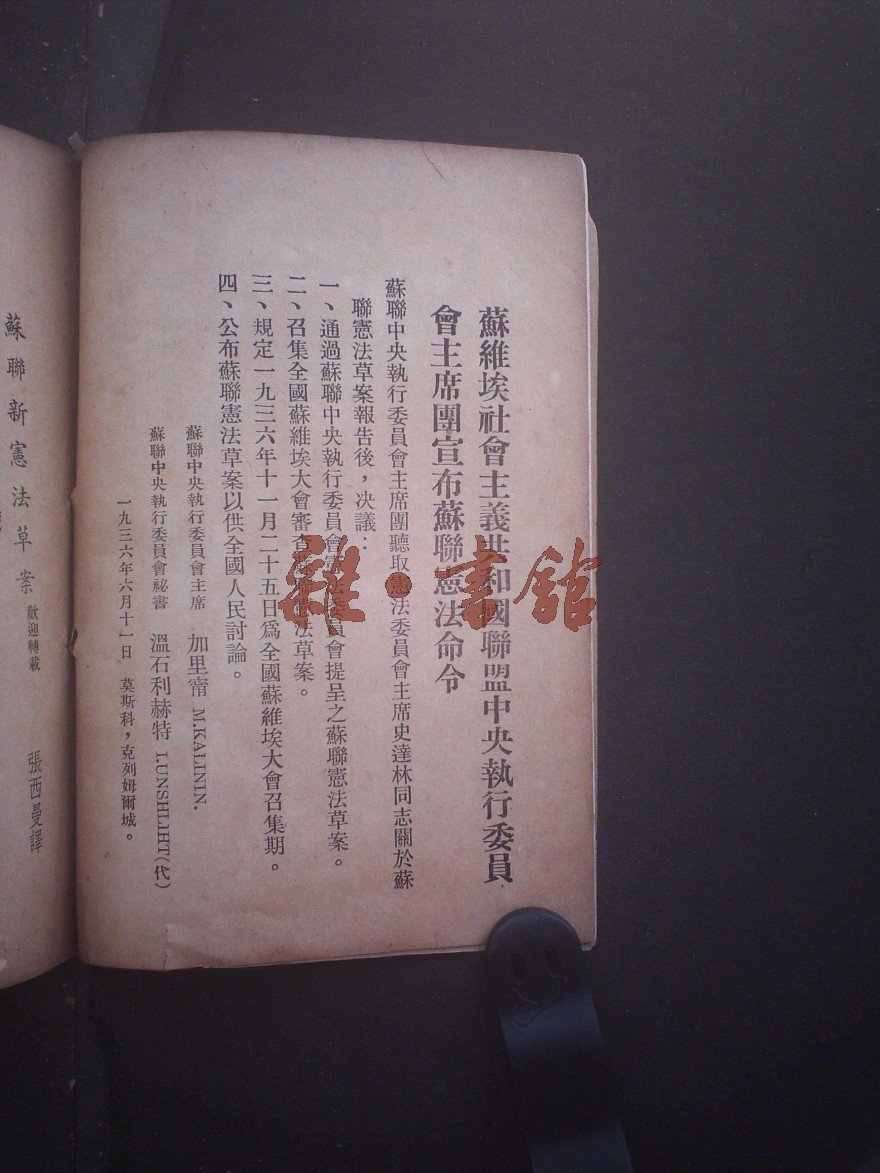 蘇維埃社會主義共和國聯盟中央執行委員
會主席團宣布蘇聯憲法命令
蘇聯中央執行委員會主席團聽取憲法委員會主席史達林同志關於蘇
聯憲法草案報告後，決議：
一、通過蘇聯中央執行委員會憲法委員會提呈之蘇聯憲法草案。
二、召集全國蘇維埃大會審查蘇聯憲法草案。
三、規定一九三六年十一月二十五日爲全國蘇維埃大會召集期。
四、公布蘇聯憲法草案以供全國人民討論。
蘇聯中央執行委員會主席 加里甯 M.KALININ.
蘇聯中央執行委員會祕書 溫石利赫特 I.UNSHLIHT(代)
一九三六年六月十一日 莫斯科，克列姆爾城。
蘇聯新憲法草案 歡迎轉載 張西曼譯
雜·書館